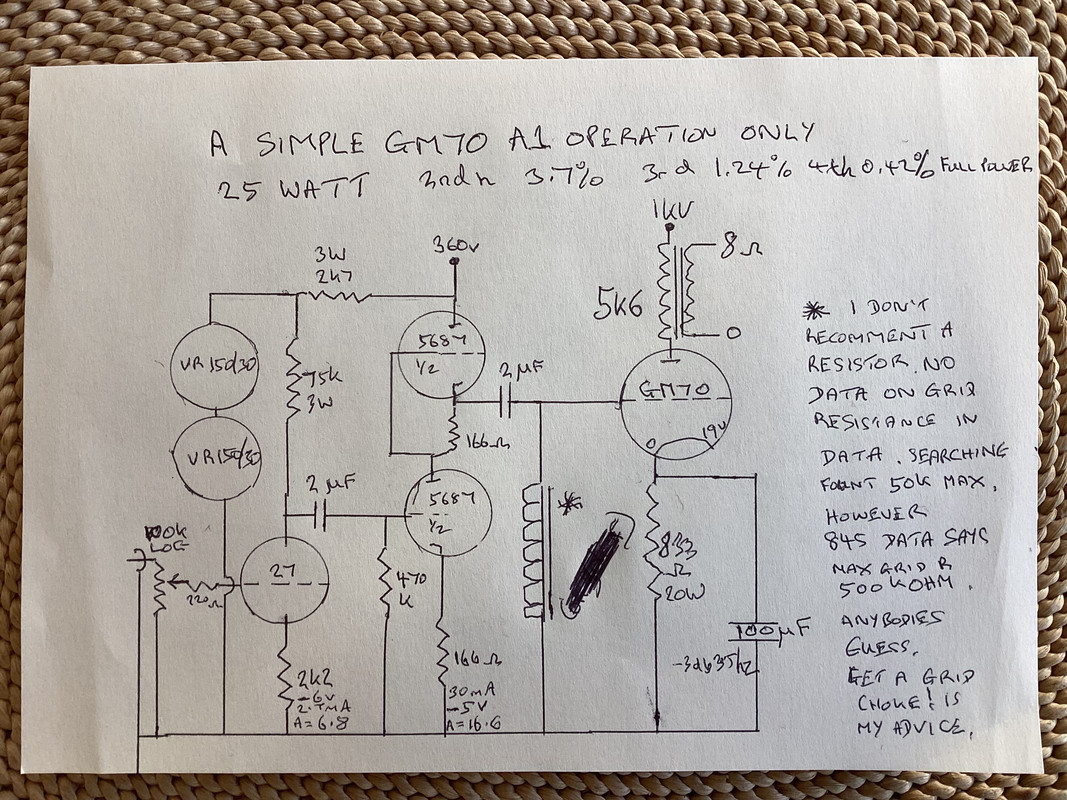 A SIMPLE GM70 A1 OPERATION ONLY
25 WATT 2nd h 3.7% 3rd 1.24% 4th 0.42% FULL POWER
1KV
8Ω
360v
3W
2k7
5K6
0
VR150/30
VR150/30
75k
3W
5687
1/2
2 µF
166Ω
GM70
0
19V
2 µF
5687
1/2
*
100k
LOG
220Ω
27
470
K
833
Ω
20W
2k2
-6v
2.7mA
A=6.8
166Ω
30mA
-5V
A=16.6
100µF
-3db 35hz
* I DON'T
RECOMMENT A
RESISTOR. NO
DATA ON GRID
RESISTANCE IN
DATA. SEARCHING
FOUNT 50K MAX.
HOWEVER
845 DATA SAYS
MAX GRID R
500KOHM.
ANYBODIES
GUESS.
GET A GRID
CHOKE! IS
MY ADVICE.